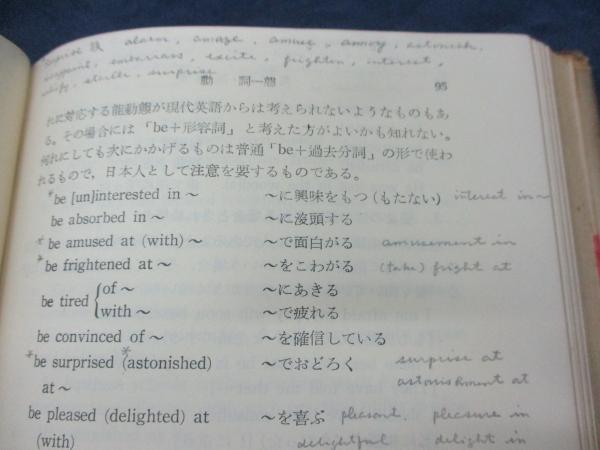 surprise 類 alarm, amaze, amuse, annoy, astonish,
disappoint, embarrass, excite, frighten, interest,
satisfy, startle, surprise
動詞―態 95
れに対応する能動態が現代英語からは考えられないようなものもあ
る。その場合には「be+形容詞」と考えた方がよいかも知れない。
何れにしても次にかかげるものは普通「be+過去分詞」の形で使わ
れるもので、日本人として注意を要するものである。
*be [un]interested in ～ ～に興味をもつ(もたない) interest in～
be absorbed in ～ ～に没頭する
*be amused at (with) ～ ～で面白がる amusement in
*be frightened at ～ ～をこわがる (take) fright at
be tired {of ～ ～にあきる
with ～ ～で疲れる
be convinced of ～ ～を確信している
*be surprised (*astonished) ～でおどろく surprise at
at ～ astonishment at
be pleased (delighted) at ～を喜ぶ pleasant, pleasure in
(with) delightful delight in